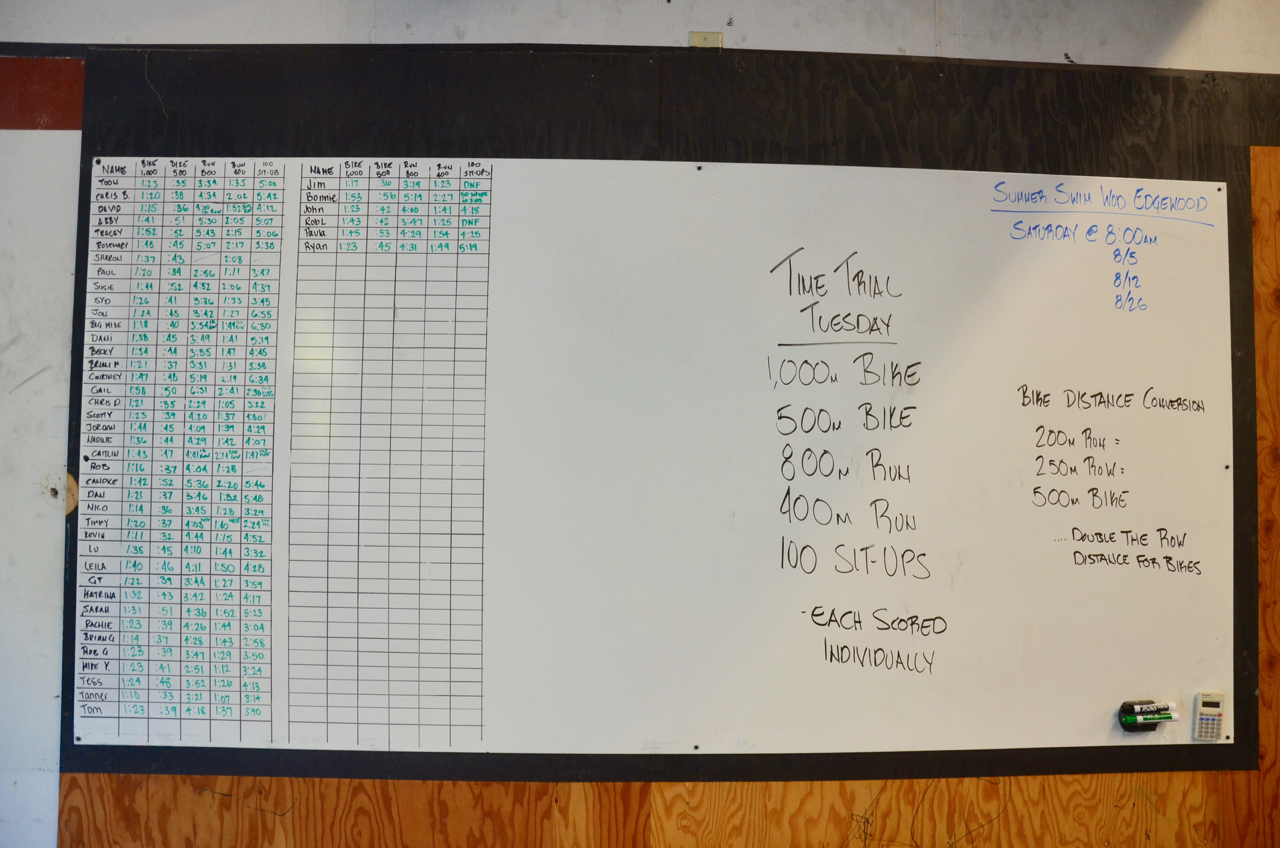 NAME BIKE 1,000 BIKE 500 RUN 800 RUN 400 100 SIT-UPS
TOON 1:23 :35 3:34 1:35 5:00
CHRIS B. 1:20 :38 4:34 2:02 5:42
DAVID 1:15 :36 4:12
ABBY 1:41 :51 5:30 2:05 5:07
TRACEY 1:52 :52 5:43 2:15 5:06
ROSEMARY 1:48 :45 5:07 2:17 3:38
SHARON 1:37 :43 2:08
PAUL 1:20 :34 2:56 1:11 3:47
SUSIE 1:44 :52 4:52 2:06 4:37
SYD 1:26 :41 3:36 1:33 3:45
JON 1:24 :45 3:42 1:27 6:55
BIG MIKE 1:18 :40 6:30
DANI 1:38 :45 3:49 1:41 5:19
BECKY 1:34 :44 3:55 1:47 4:45
BRIAN P. 1:21 :37 3:31 1:31 3:38
COURTNEY 1:47 :48 5:19 2:19 6:34
GAIL 1:58 :50 6:31 2:41
CHRIS D. 1:21 :35 2:29 1:05 3:22
SCOTTY 1:23 :39 4:20 1:37 4:30
JORDAN 1:44 :45 4:09 1:39 4:29
1:36 :44 4:29 1:42 4:07
CAITLIN 1:43 :47
ROB 1:16 :37 4:04 1:28
CANDACE 1:42 :52 5:36 2:20 5:46
DAN 1:21 :37 3:46 1:32 5:48
NICO 1:14 :36 3:45 1:28 3:29
TIMMY 1:20 :37
KEVIN 1:11 :32 4:44 1:15 4:52
LU 1:38 :45 4:10 1:44 3:32
LEILA 1:40 :46 4:11 1:50 4:28
GT 1:22 :39 3:44 1:27 3:59
KATRINA 1:32 :43 3:42 1:24 4:17
SARAH 1:31 :51 4:36 1:52 5:23
RACHIE 1:23 :39 4:26 1:44 3:04
BRIAN G 1:14 :37 4:28 1:43 2:58
ROB G 1:23 :39 3:47 1:29 3:50
MIKE Y. 1:23 :41 2:51 1:12 3:24
Tess 1:24 :48 3:52 1:26 4:13
Tanner 1:10 :33 3:21 1:07 3:14
Tom 1:23 :39 4:18 1:37 3:40
NAME BIKE 1,000 BIKE 500 RUN 800 RUN 400 100 SIT-UPS
Jim 1:17 :36 3:19 1:23 DNF
Bonnie 1:53 :56 5:14 2:27
John 1:23 :42 4:00 1:41 4:18
Robz 1:43 :42 3:47 1:25 DNF
Paula 1:45 :53 4:29 1:54 4:25
Ryan 1:23 :45 4:31 1:49 5:19
TIME TRIAL
TUESDAY
1,000m BIKE
500m BIKE
800m RUN
400m RUN
100 SIT-UPS
-EACH SCORED
INDIVIDUALLY
SUMMER SWIM WOD EDGEWOOD
SATURDAY @ 8:00AM
8/5
8/12
8/26
BIKE DISTANCE CONVERSION
200m RUN =
250m ROW =
500m BIKE
....DOUBLE THE ROW
DISTANCE FOR BIKES